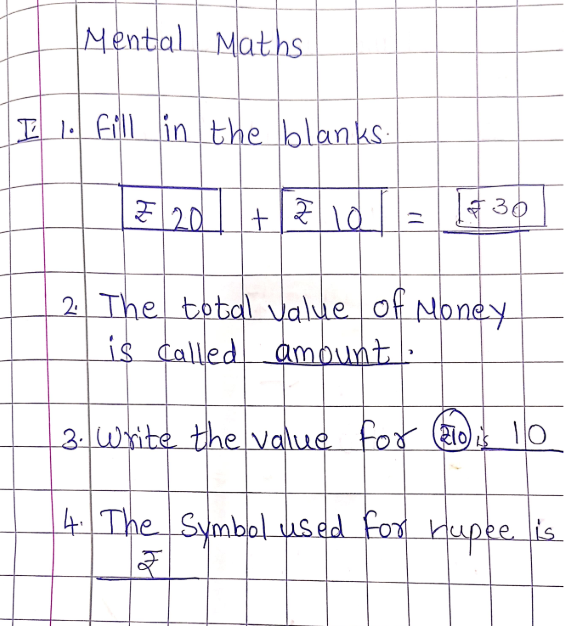 Mental Maths
I. 1. Fill in the blanks.
₹ 20 + ₹ 10 = ₹ 30
2. The total value of Money
is called amount.
3. Write the value for ₹10 is 10
4. The Symbol used for rupee is
₹